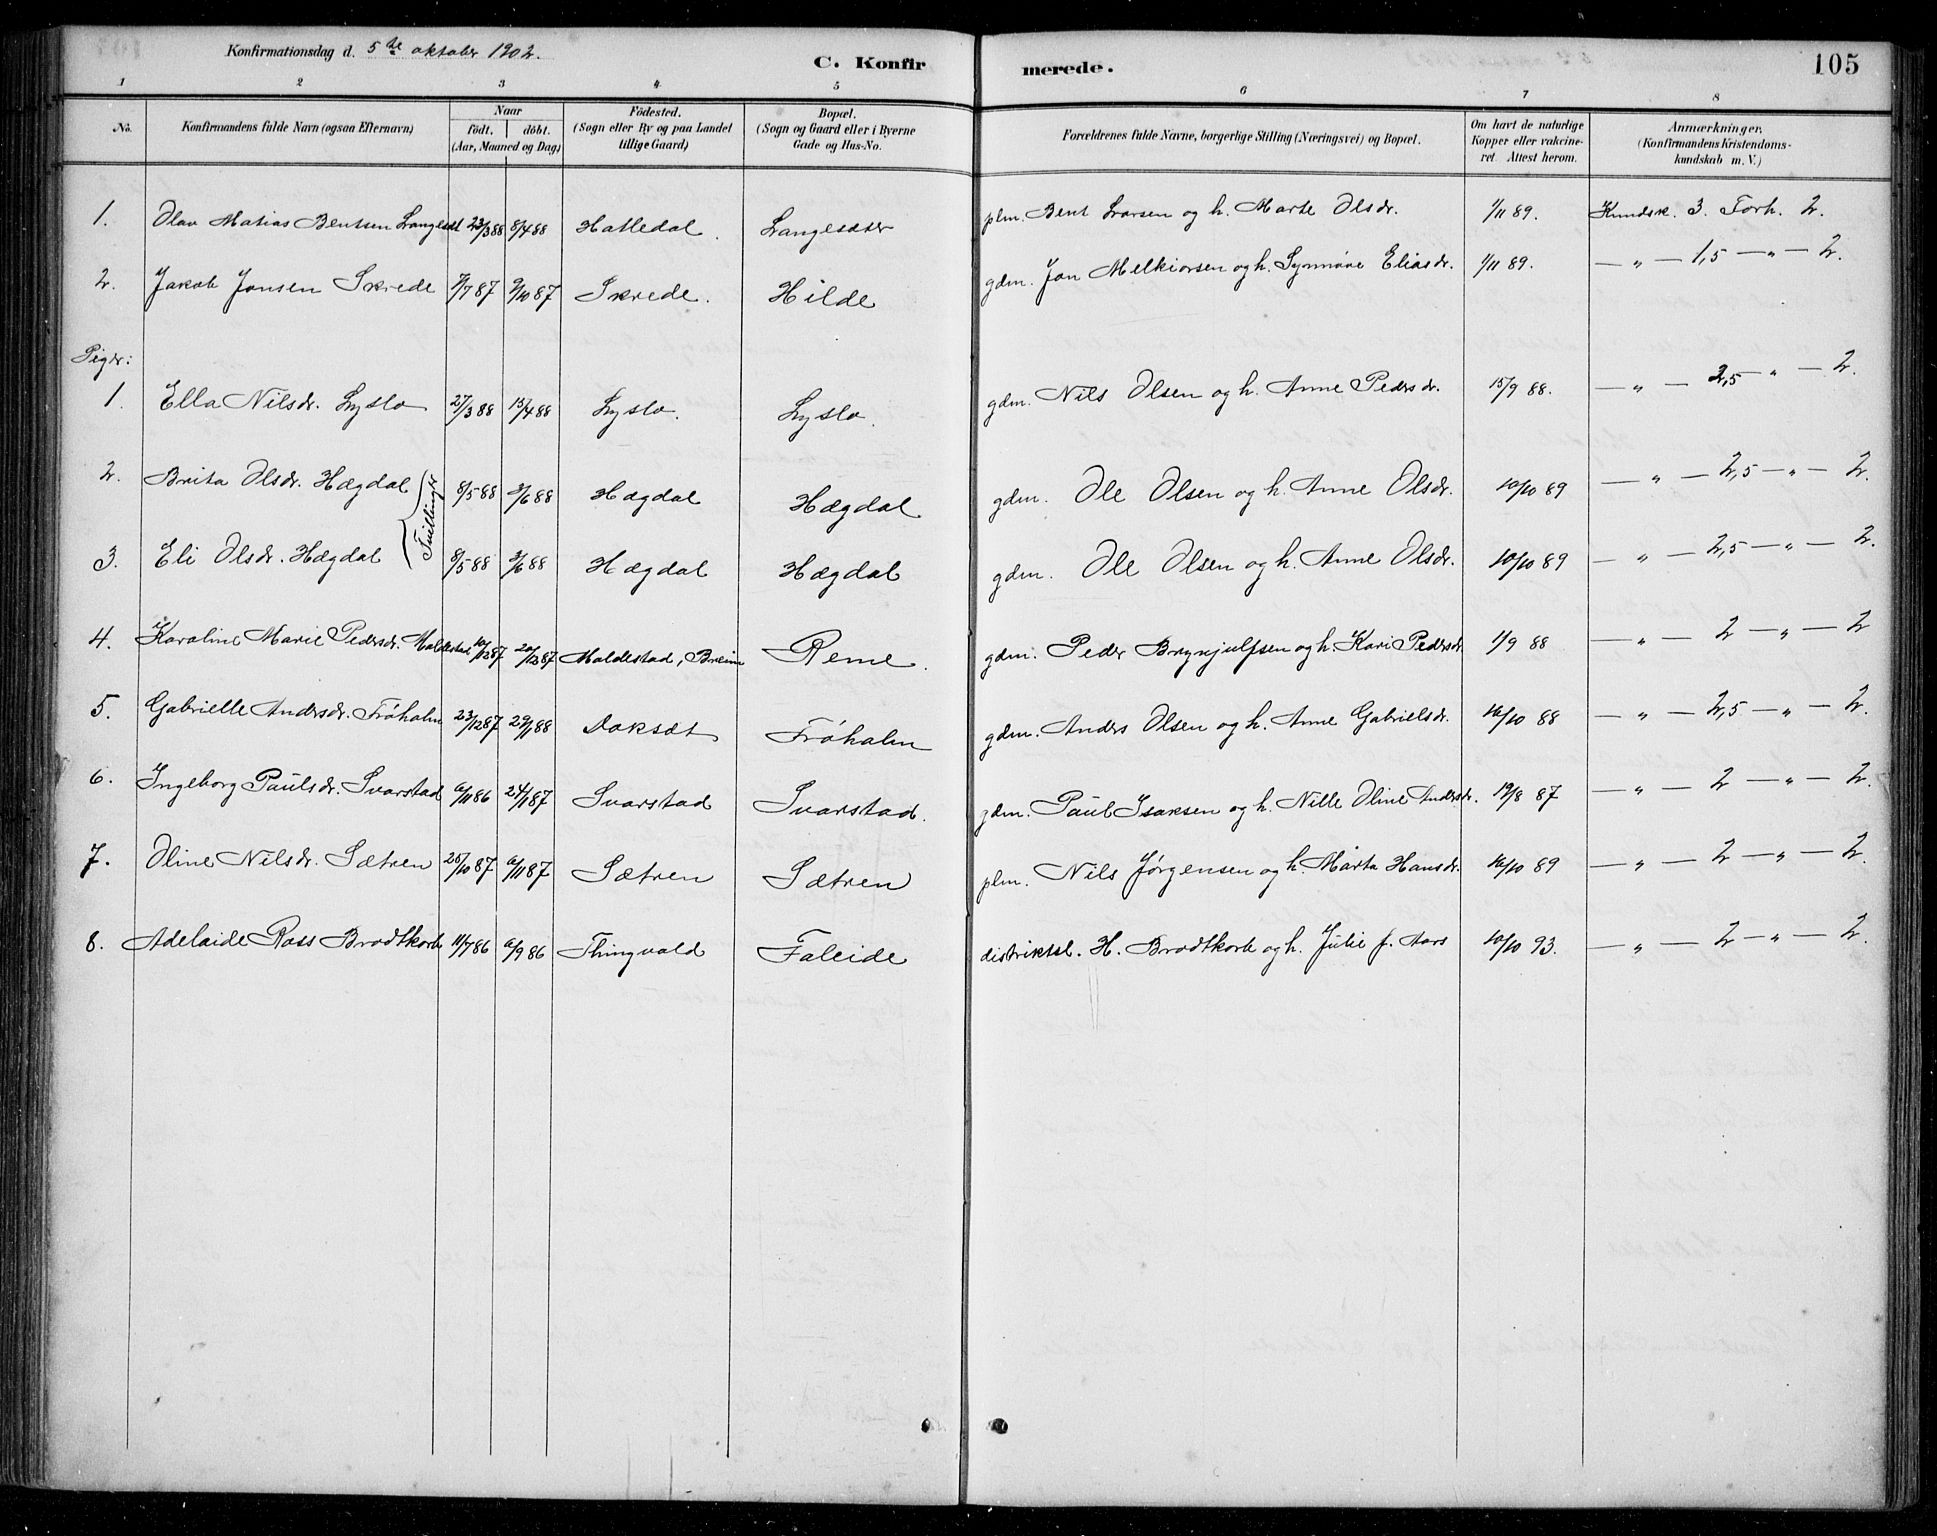 Konfirmationsdag d. 5te oktober 1902.
C. Konfirmerede.
105
1 2 3 4 5 6 7 8
No.
Konfirmandens fulde Navn (ogsaa Efternavn)
Naar
født, | døbt.
(Aar, Maaned og Dag)
Fødested.
(Sogn eller By og paa Landet
tillige Gaard)
Bopæl.
(Sogn og Gaard eller i Byerne
Gade og Hus-No.
Forældrenes fulde Navne, borgerlige Stilling (Næringsvei) og Bopæl.
Om havt de naturlige
Kopper eller vakcine-
ret. Attest herom.
Anmærkninger.
(Konfirmandens Kristendoms-
kundskab m. V.)
1. Olav Matias Bentsen Langesæt 23/3 88 8/4 88 Hatledal. Langesæter plm. Bent Larsen og h. Marte Olsdr. 1/11 89. Kundsk. 3. Forh. 2.
2. Jakob Jonsen Skrede 7/7 87 9/10 87 Skrede. Hilde gdm. Jon Melkiorsen og h. Synnøve Eliasdr. 1/11 89. — „ — 1,5 — „ — 2.
Piger:
1. Ella Nilsdr. Lyslo 27/3 88 15/4 88 Lyslo. Lyslo. gdm. Nils Olsen og h. Anne Pedersdr. 15/9 88. — „ — 2,5 — „ — 2.
2. Brita Olsdr. Hægdal 8/5 88 3/6 88 Hægdal Hægdal gdm. Ole Olsen og h. Anne Olsdr. 10/10 89 — „ — 2,5 — „ — 2.
Tvillinger
3. Eli Olsdr. Hægdal 8/5 88 3/6 88 Hægdal Hægdal gdm. Ole Olsen og h. Anne Olsdr. 10/10 89 — „ — 2,5 — „ — 2.
4. Karoline Marie Pedersdr. Moldestad 10/12 87 20/12 87 Moldestad, Breim Reme. gdm. Peder Brynjulfsen og h. Kari Pedersdr. 1/9 88 — „ — 2 — „ — 2
5. Gabrielle Andersdr. Frøholm 23/12 87 29/1 88 Doksæt Frøholm gdm. Anders Olsen og h. Anne Gabrielsdr. 16/10 88 — „ — 2,5 — „ — 2.
6. Ingeborg Paulsdr. Svarstad 6/11 86 24/1 87 Svarstad Svarstad. gdm. Paul Isaksen og h. Nille Oline Andersdr. 19/8 87 — „ — 2 — „ — 2.
7. Oline Nilsdr. Sætren 25/10 87 6/11 87 Sætren Sætren plm. Nils Jørgensen og h. Märta Hansdr. 16/10 89 — „ — 2 — „ — 2.
8. Adelaide Ross Brodtkorb 11/7 86 6/9 86 Thingvold Faleide distriktsl. H. Brodtkorb og h. Julie f. Aars 10/10 93. — „ — 2 — „ — 2.